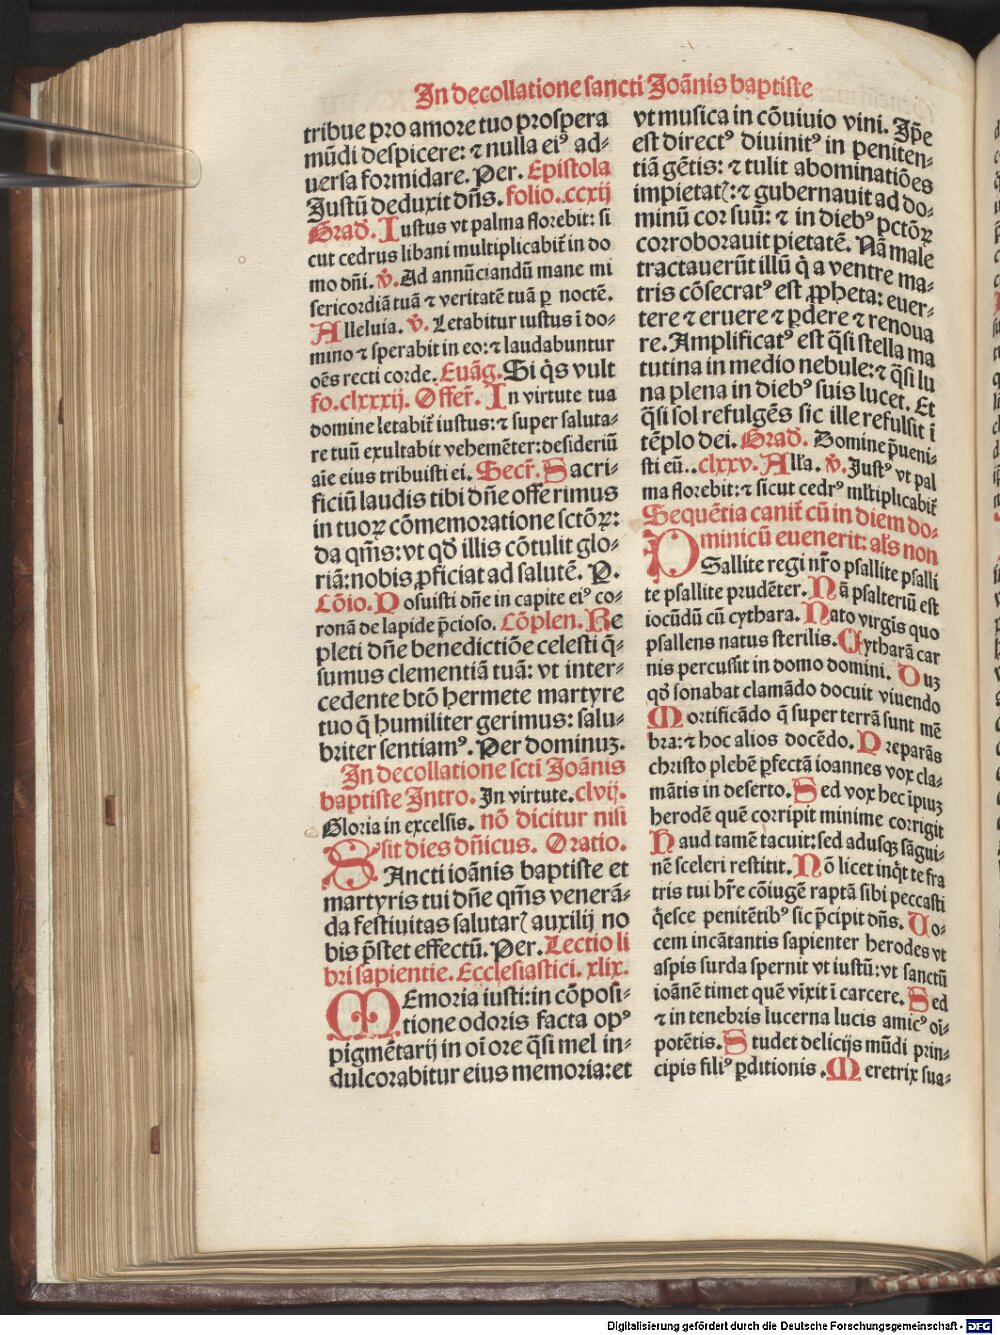 In decollatione sancti Joãnis baptiste
tribue pro amore tuo prospera
mũdi despicere: ⁊ nulla eiꝰ ad-
uersa formidare. Per. Epistola
Justũ deduxit dñs. folio.ccxij
Grad̃. Iustus vt palma florebit: si
cut cedrus libani multiplicabit̃ in do
mo dñi. ꝟ. Ad annũciandũ mane mi
sericordiã tuã ⁊ veritatẽ tuã ꝑ noctẽ.
Alleluia. ꝟ. Letabitur iustus ĩ do-
mino ⁊ sperabit in eo: ⁊ laudabuntur
oẽs recti corde. Euãg. Si q̇s vult
fo.clxxxij. Offer̃. In virtute tua
domine letabit̃ iustus: ⁊ super saluta-
re tuũ exultabit vehemẽter: desideriũ
aĩe eius tribuisti ei. Secr̃. Sacri-
ficiũ laudis tibi dñe offerimus
in tuoꝝ cõmemoratione sctõꝝ:
da q̃ms: vt qđ illis cõtulit glo-
riã: nobis ꝓficiat ad salutẽ. P.
Cõio. Posuisti dñe in capite eiꝰ co-
ronã de lapide p̃cioso. Cõplen. Re
pleti dñe benedictiõe celesti q̃-
sumus clementiã tuã: vt inter-
cedente btõ hermete martyre
tuo q̃ humiliter gerimus: salu-
briter sentiamꝰ. Per dominuꝫ.
In decollatione scti Joãnis
baptiste Intro. In virtute. clvij.
Gloria in excelsis. nõ dicitur nisi
sit dies dñicus. Oratio.
SAncti ioãnis baptiste et
martyris tui dñe q̃ms venerã-
da festiuitas salutarꝭ auxilij no
bis p̃stet effectũ. Per. Lectio li
bri sapientie. Ecclesiastici. xlix.
MEmoria iusti: in cõposi-
tione odoris facta opꝰ
pigmẽtarij in oĩ ore q̃si mel in-
dulcorabitur eius memoria: et
vt musica in cõuiuio vini. Ip̃e
est directꝰ diuinitꝰ in peniten-
tiã gẽtis: ⁊ tulit abominatiões
impietatꝭ: ⁊ gubernauit ad do-
minũ cor suũ: ⁊ in diebꝰ pctõꝝ
corroborauit pietatẽ. Nã male
tractauerũt illũ q̇ a ventre ma-
tris cõsecratꝰ est ꝓpheta: euer-
tere ⁊ eruere ⁊ ꝑdere ⁊ renoua
re. Amplificatꝰ est q̃si stella ma
tutina in medio nebule: ⁊ q̃si lu
na plena in diebꝰ suis lucet. Et
q̃si sol refulgẽs sic ille refulsit ĩ
tẽplo dei. Grad̃. Domine p̃ueni-
sti eũ..clxxv. Alľa. ꝟ. Justꝰ vt pal
ma florebit: ⁊ sicut cedrꝰ mľtiplicabit̃
Sequẽtia canit̃ cũ in diem do-
minicũ euenerit: aľs non
PSallite regi nr̃o psallite psalli
te psallite prudẽter. Nã psalteriũ est
iocũdũ cũ cythara. Nato virgĩs quo
psallens natus sterilis. Cytharã car
nis percussit in domo domini. Duꝫ
qđ sonabat clamãdo docuit viuendo
Mortificãdo q̃ super terrã sunt mẽ
bra: ⁊ hoc alios docẽdo. Preparãs
christo plebẽ ꝑfectã ioannes vox cla-
mãtis in deserto. Sed vox hec ip̃iuꝫ
herodẽ quẽ corripit minime corrigit
Haud tamẽ tacuit: sed adusqꝫ sãgui-
nẽ sceleri restitit. Nõ licet inq̇t te fra
tris tui hr̃e cõiugẽ raptã sibi peccasti
q̇esce penitẽtibꝰ sic p̃cipit dñs. Uo-
cem incãtantis sapienter herodes vt
aspis surda spernit vt iustũ: vt sanctũ
ioãnẽ timet quẽ vĩxit ĩ carcere. Sed
⁊ in tenebris lucerna lucis amicꝰ oĩ-
potẽtis. Studet delicijs mũdi prin-
cipis filiꝰ ꝑditionis. Meretrix sua-
Digitalisierung gefördert durch die Deutsche Forschungsgemeinschaft - DFG